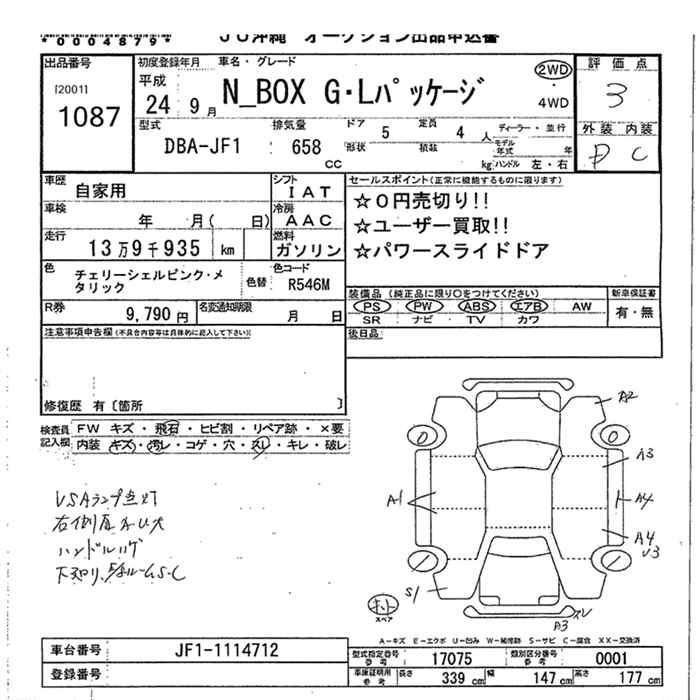 *0004879*
JU沖縄 オークション出品申込書
出品番号
[2001]
1087
初度登録年月
平成
24 9 月
車名・グレード
N_BOX G・Lパッケージ
2WD
・
4WD
評価点
3
型式
DBA-JF1
排気量
658
cc
ドア
5
定員
4 人
形状
積載
kg
ディーラー・並行
モデル年式 年
ハンドル 左・右
外装 内装
D C
車歴
自家用
シフト
IAT
車検
年 月( 日)
冷房
AAC
走行
13万9千935 km
燃料
ガソリン
色
チェリーシェルピンク・メタリック
色替
色コード
R546M
R券
9,790円
名変通知期限
月 日
セールスポイント(正常に機能するものに限ります)
☆0円売切り!!
☆ユーザー買取!!
☆パワースライドドア
装備品 (純正品に限り○をつけてください)
PS PW ABS エアB AW
SR ナビ TV カワ
新車保証書
有・無
後日品
注意事項申告欄(不具合内容等は具体的に記入して下さい)
修復歴 有〔箇所 〕
検査員記入欄
FW キズ・飛石・ヒビ割・リペア跡・×要
内装 キズ・汚レ・コゲ・穴・スレ・キレ・破レ
VSAランプ点灯
ハンドルハゲ
A2
A3
A1
A4
A4
U3
S1
スペア
スレ
A3
A-キズ E-エクボ U-凹み W-補修跡 S-サビ C-腐食 XX-交換済
車台番号
JF1-1114712
登録番号
型式指定番号
参考
17075
類別区分番号
参考
0001
車庫証明用
参考
長さ
339 cm
幅
147 cm
高さ
177 cm